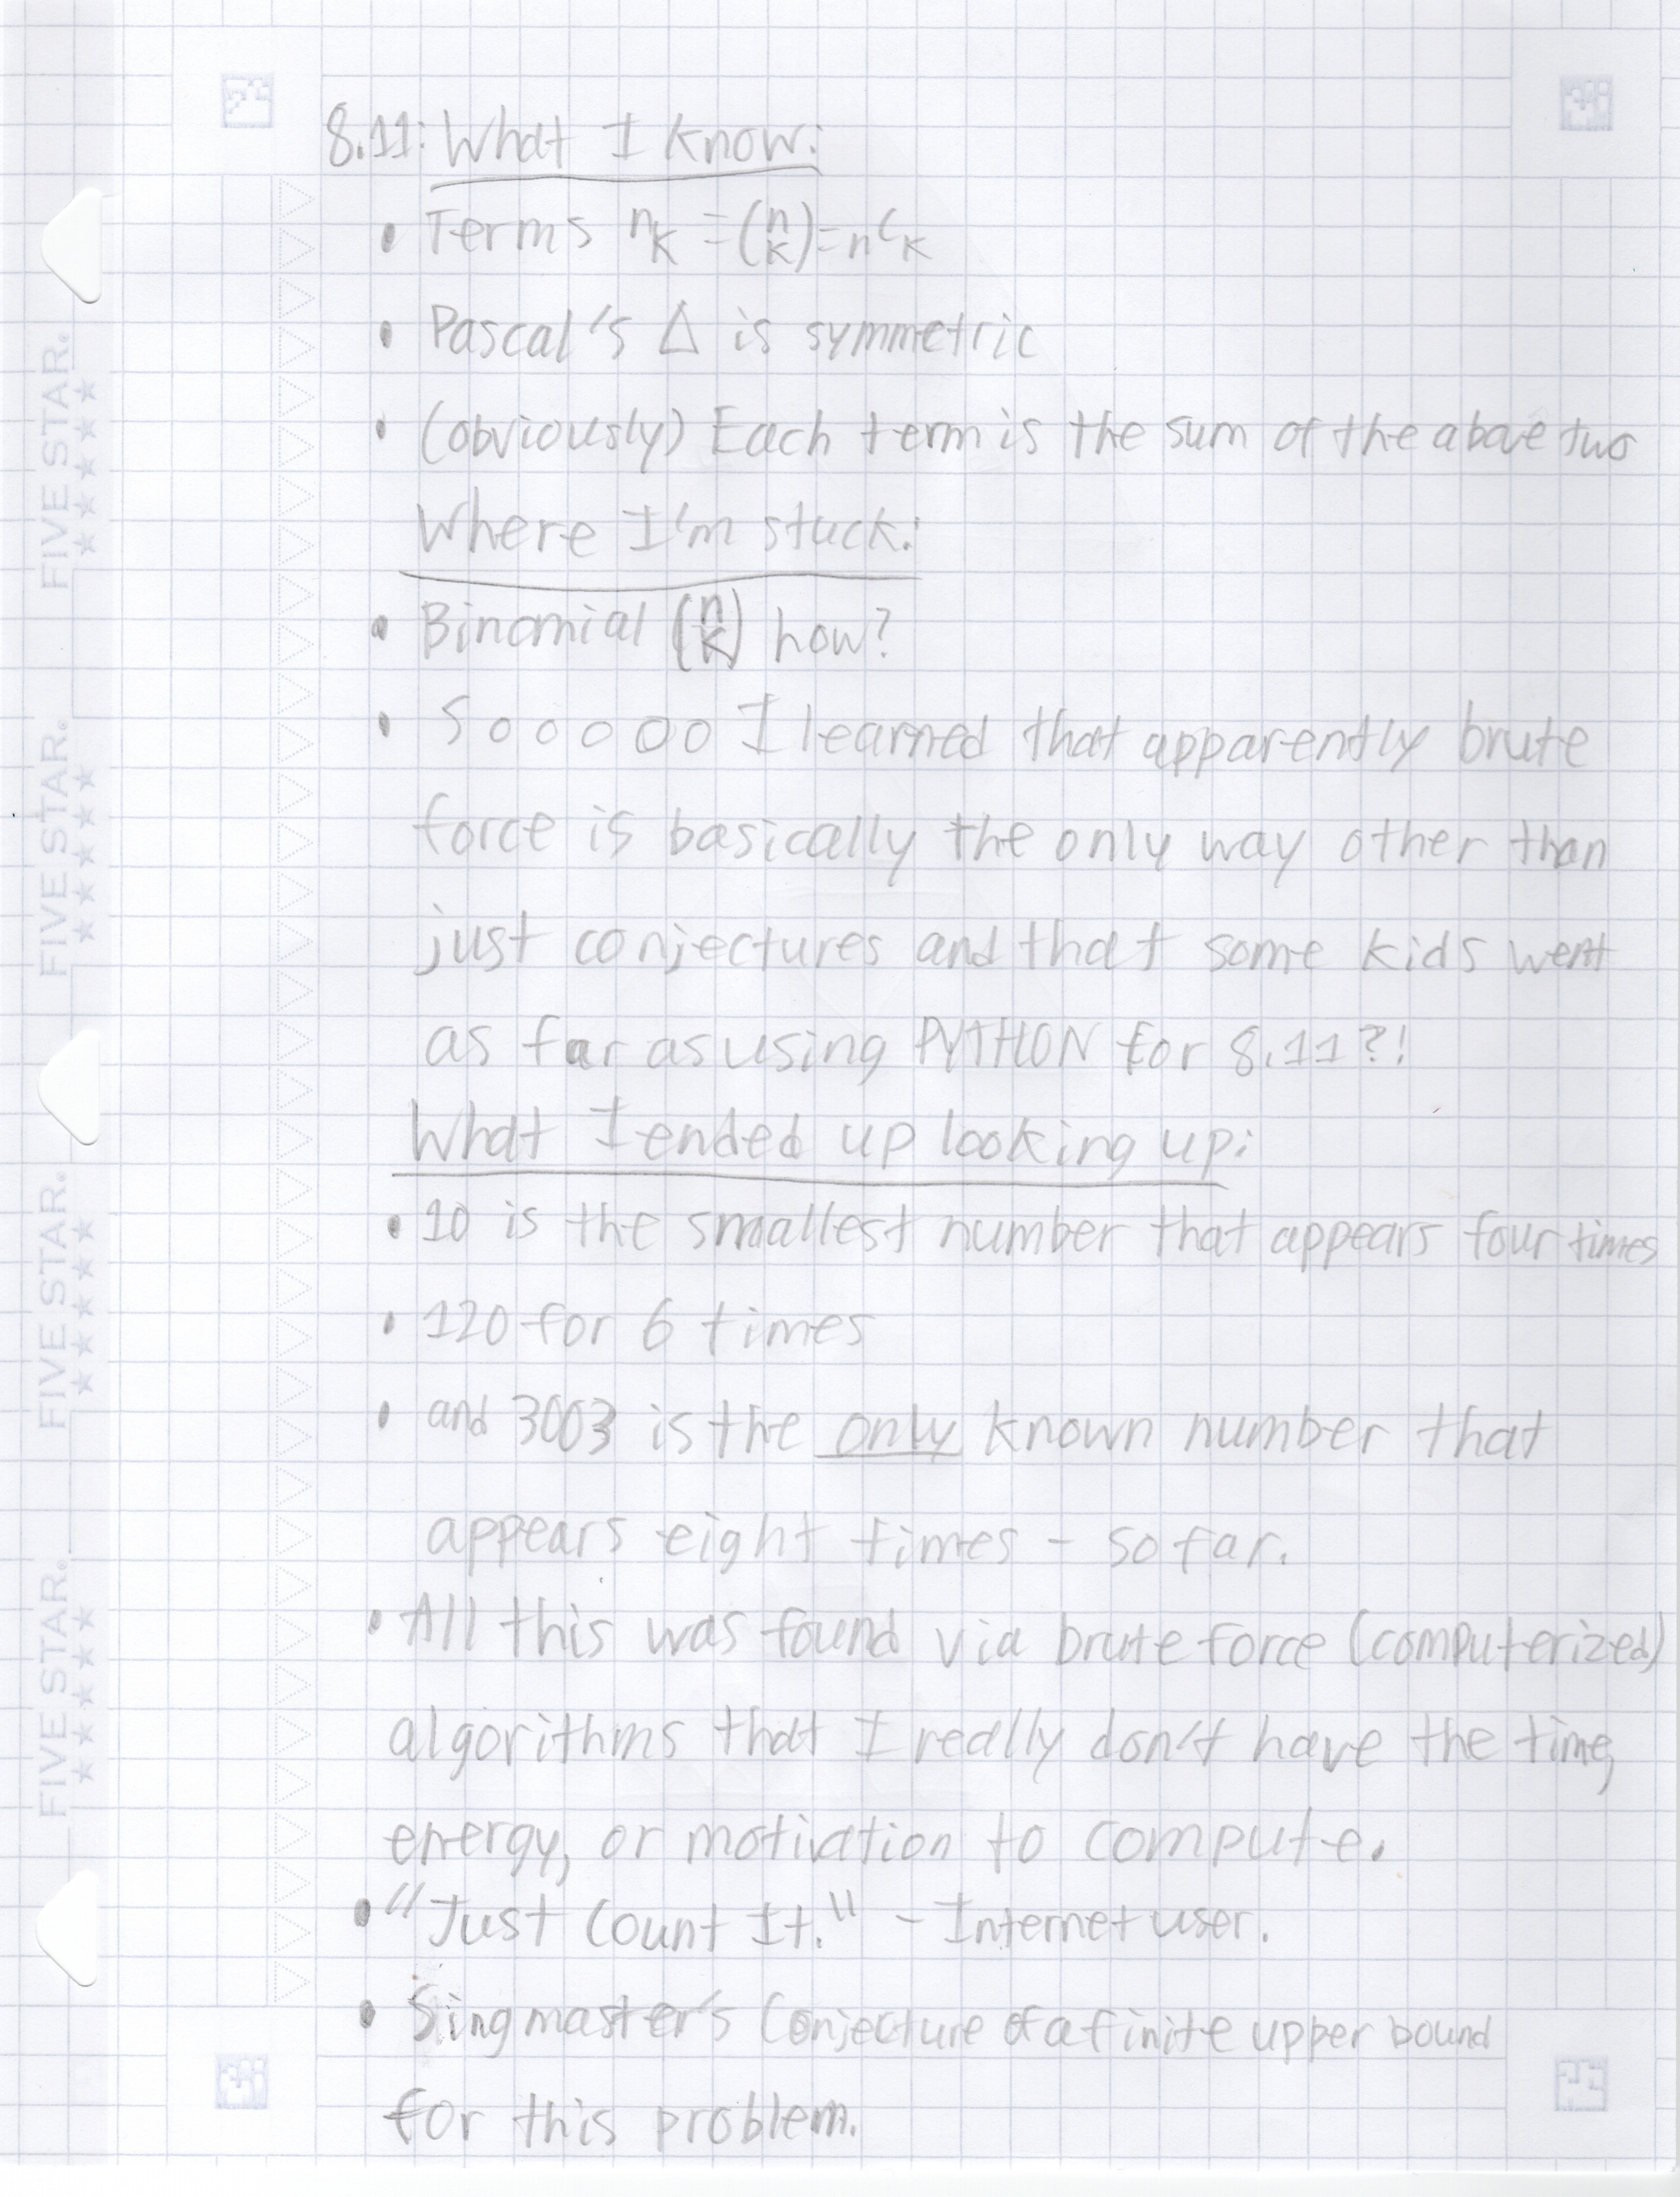 8.11: What I know:
• Terms nk = (n k) = nCk
• Pascal's △ is symmetric
• (obviously) Each term is the sum of the above two
Where I'm stuck:
• Binomial (n k) how?
• Sooooo I learned that apparently brute
force is basically the only way other than
just conjectures and that some kids went
as far as using PYTHON for 8.11?!
What I ended up looking up:
• 10 is the smallest number that appears four times
• 120 for 6 times
• and 3003 is the only known number that
appears eight times - so far.
• All this was found via brute force (computerized)
algorithms that I really don't have the time,
energy, or motivation to compute.
• "Just Count It." - Internet user.
• Singmaster's Conjecture of a finite upper bound
for this problem.
FIVE STAR.
FIVE STAR.
FIVE STAR.
FIVE STAR.